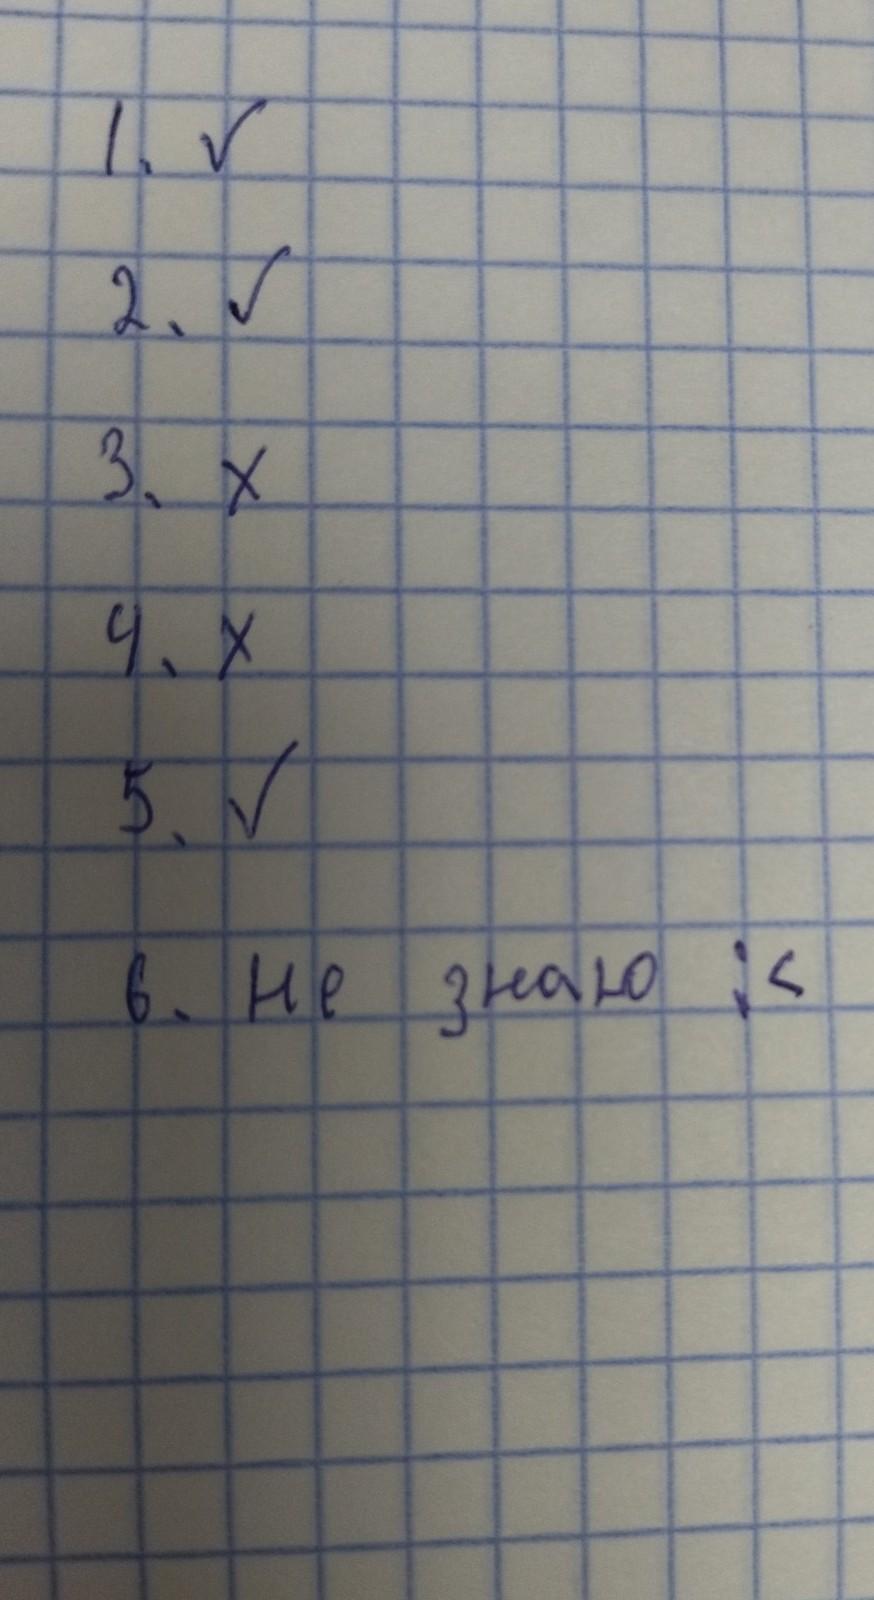 1. ✓
2. ✓
3. x
4. x
5. ✓
6. не знаю ;<